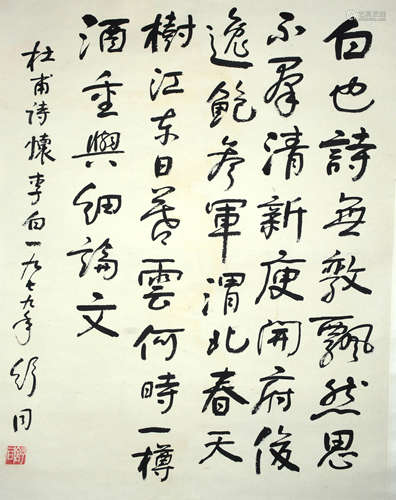 白也詩無敵飄然思
不羣清新庾開府俊
逸鮑參軍渭北春天
樹江东日暮雲何時一樽
酒重與細論文
杜甫詩懷李白一九七九年舒同